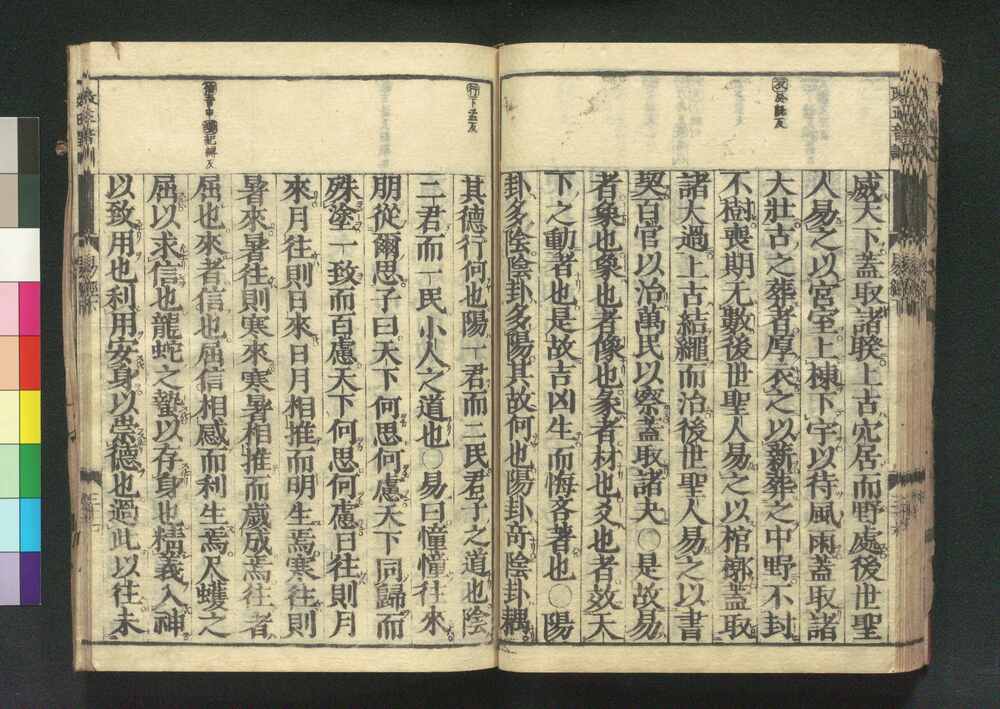 衣於既反
威天下蓋取諸睽上古穴居而野處後世聖
人易之以宮室上棟下宇以待風雨蓋取諸
大壯古之葬者厚衣之以薪葬之中野不封
不樹喪期无數後世聖人易之以棺槨蓋取
諸大過上古結繩而治後世聖人易之以書
契百官以治萬民以察蓋取諸夬○是故易
者象也象也者像也彖者材也爻也者效天
下之動者也是故吉凶生而悔吝著也○陽
卦多陰陰卦多陽其故何也陽卦奇陰卦耦
行下孟反
其德行何也陽一君而二民君子之道也陰
二君而一民小人之道也○易曰憧憧往來
朋從爾思子曰天下何思何慮天下同歸而
殊塗一致而百慮天下何思何慮日往則月
來月往則日來日月相推而明生焉寒往則
暑來暑往則寒來寒暑相推而歲成焉往者
屈也來者信也屈信相感而利生焉尺蠖之
屈以求信也龍蛇之蟄以存身也精義入神
以致用也利用安身以崇德也過此以往未